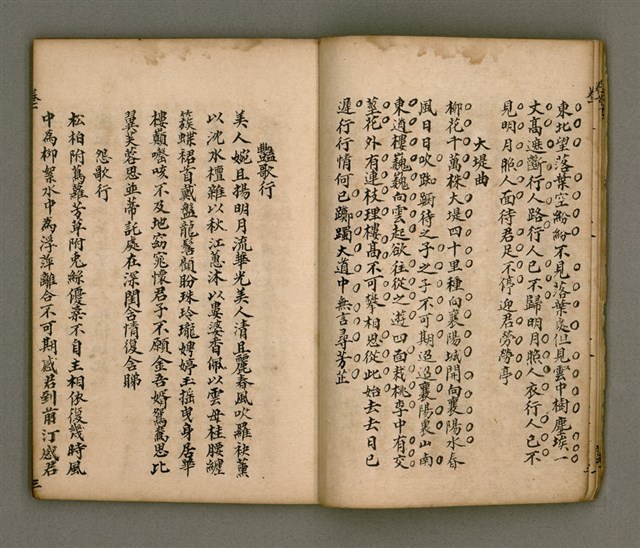 東北望落葉空紛紛不見落葉處但見雲中樹塵埃一
丈高遮斷行人路行人已不歸明月照人衣行人已不
見明月照人面待君足不停迎君勞勞亭
大堤曲
柳花千萬株大堤四十里種向襄陽城開向襄陽水春
風日日吹踟躅待之子之子不可期迢迢襄陽裏山南
東道樓巍巍向雲起欲往從之遊四面栽桃李中有交
莖花外有連枝理樓高不可攀相思從此始去去日已
遲行行情何已躑躅大道中無言尋芳芷
豔歌行
美人婉且揚明月流華光美人清且麗春風吹羅袂薰
以沈水檀雜以秋江蕙沐以婆婆香佩以雲母桂腰纏
簇蝶裙首戴盤龍髻顧盼珠玲瓏娉婷玉搖曳身居華
樓巔謦咳不及地窈窕懷君子不願金吾婿鴛鴦思比
翼芙蓉思並蒂託處在深閨含情復含睇
怨歌行
松柏附蔦蘿芳草附兔絲優柔不自主相依復幾時風
中為柳絮水中為浮萍離合不可期感君到前汀感君
卷一
三